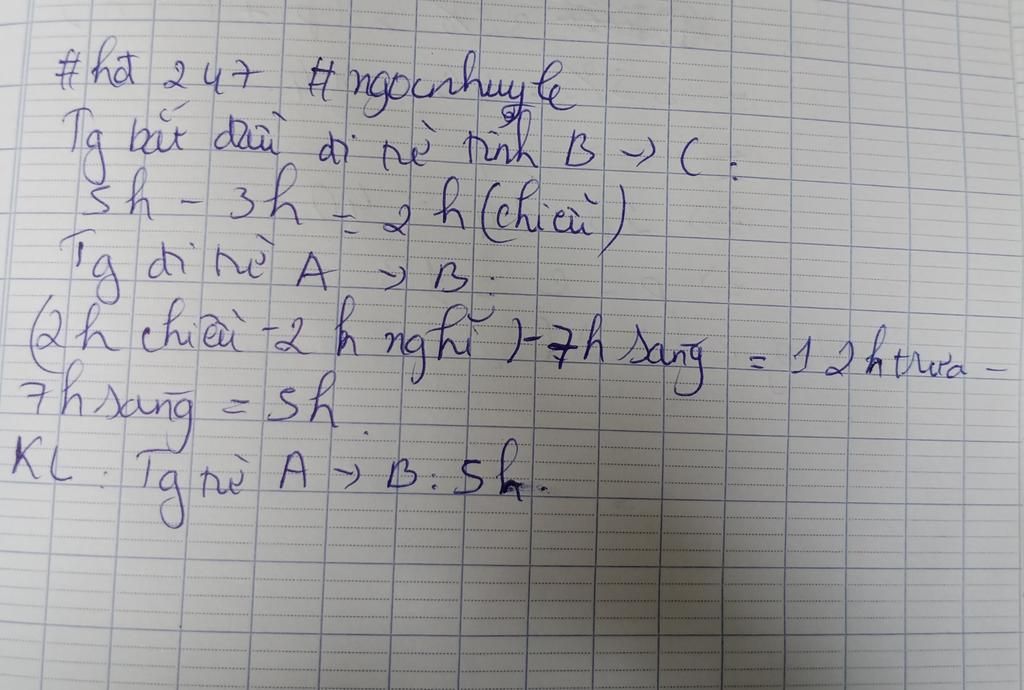 #hđ 247 #ngocnhuyle
Tg bắt đầu đi từ tỉnh B → C:
5h - 3h = 2h (chiều)
Tg đi từ A → B:
(2h chiều - 2h nghỉ) - 7h sáng = 12h trưa -
7h sáng = 5h.
KL: Tg từ A → B: 5h.